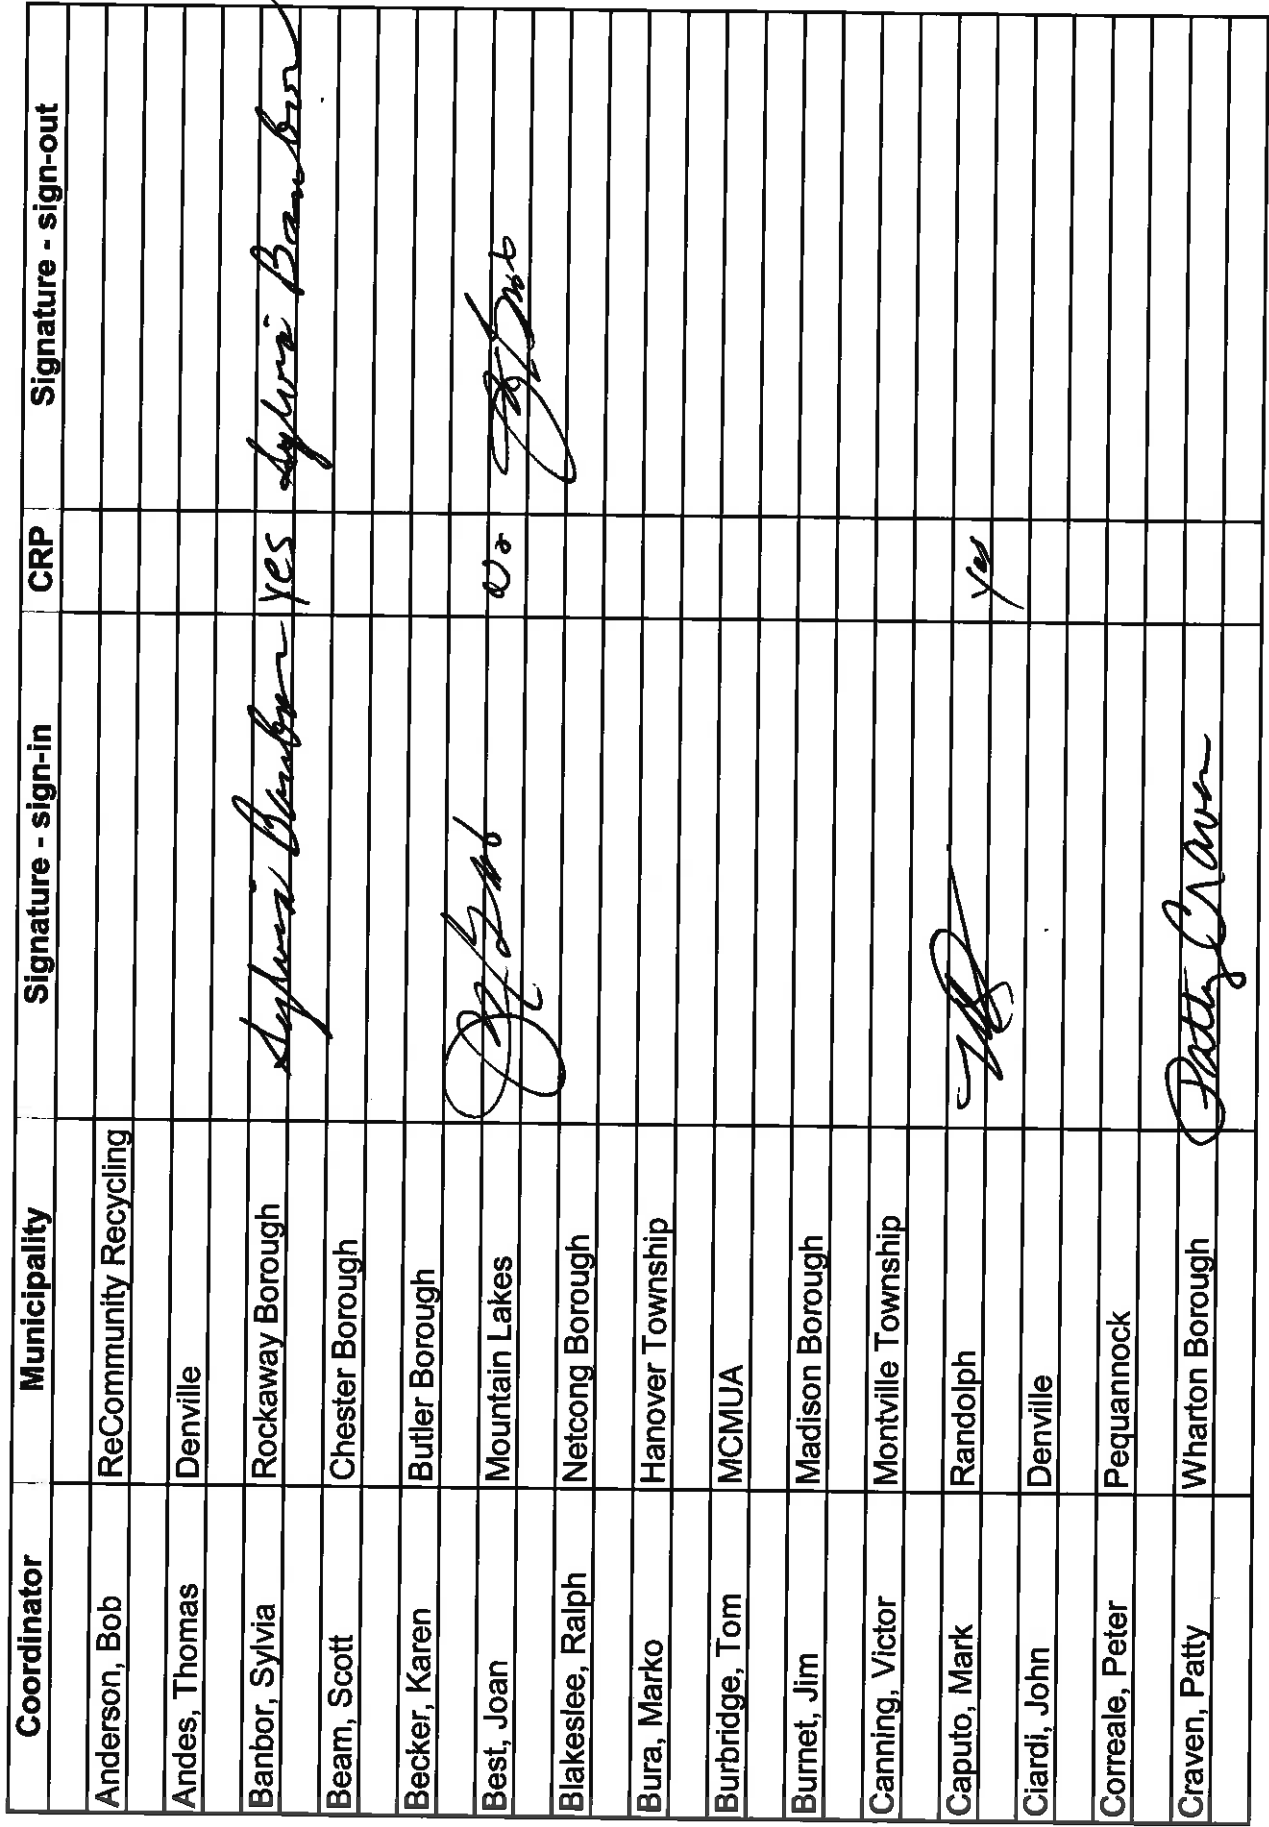 Coordinator Municipality Signature - sign-in CRP Signature - sign-out
Anderson, Bob ReCommunity Recycling
Andes, Thomas Denville
Banbor, Sylvia Rockaway Borough Sylvia Banbor Yes Sylvia Banbor
Beam, Scott Chester Borough
Becker, Karen Butler Borough
Best, Joan Mountain Lakes No
Blakeslee, Ralph Netcong Borough
Bura, Marko Hanover Township
Burbridge, Tom MCMUA
Burnet, Jim Madison Borough
Canning, Victor Montville Township
Caputo, Mark Randolph Yes
Ciardi, John Denville
Correale, Peter Pequannock
Craven, Patty Wharton Borough Patty Craven